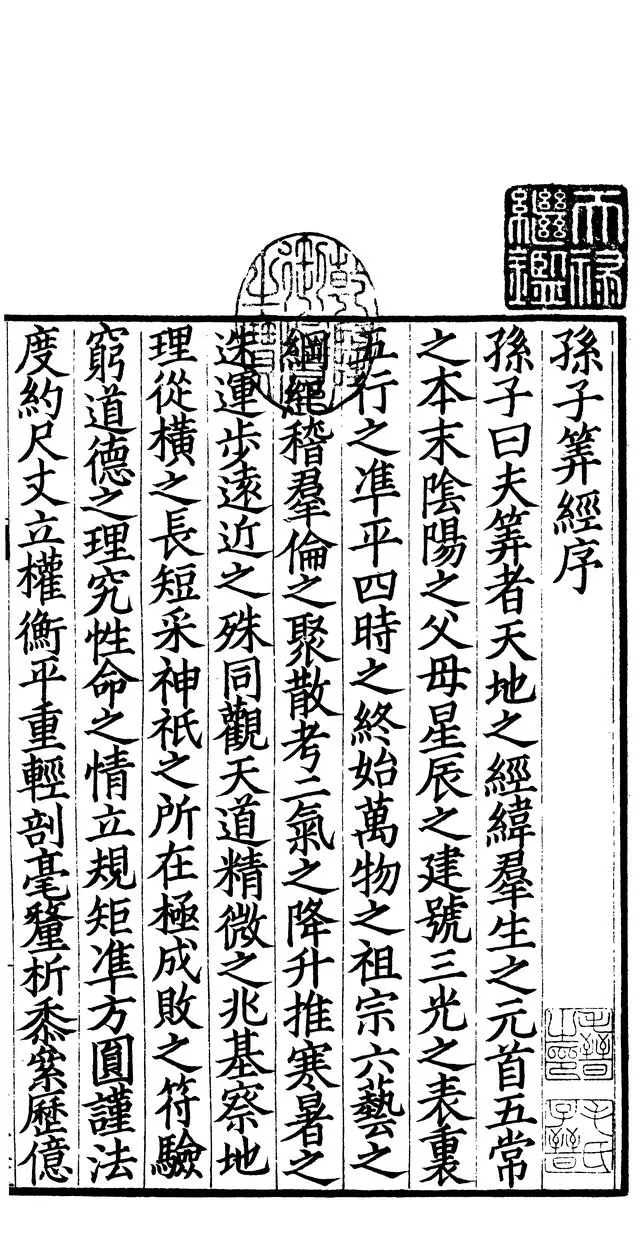 孫子筭經序
孫子曰夫筭者天地之經緯羣生之元首五常
之本末陰陽之父母星辰之建號三光之表裏
五行之準平四時之終始萬物之祖宗六藝之
綱紀稽羣倫之聚散考二氣之降升推寒暑之
迭運步遠近之殊同觀天道精微之兆基察地
理從橫之長短采神祇之所在極成敗之符驗
窮道德之理究性命之情立規矩準方圓謹法
度約尺丈立權衡平重輕剖毫釐析黍絫歷億
天祿繼鑑
乾隆御覽之寶
子晉之印
毛氏子晉